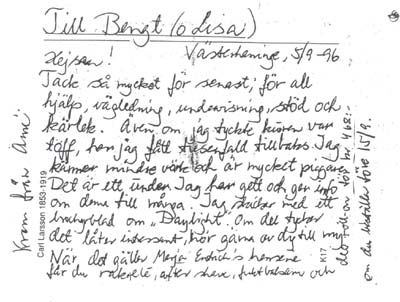 Till Bengt (o Lisa)
Hejsan! Västerhaninge, 5/9-96
Tack så mycket för senast, för all
hjälp, vägledning, undervisning, stöd och
kärlek. Även om jag tyckte kuren var
tuff, har jag fått tusenfald tillbaks. Jag
känner mindre värk och är mycket piggare.
Det är ett under. Jag har gett och ger info
om detta till många. Jag skickar med ett
broschyrblad om "Daylight". Om det tycker
det låter intressant, hör gärna av dy till mej
När det gäller
får du raklele, after shave, fuktbalsam och
deo-roll-on för kr 468:-
om du beställer före 15/9.
Kram från
Carl Larsson 1853-1919